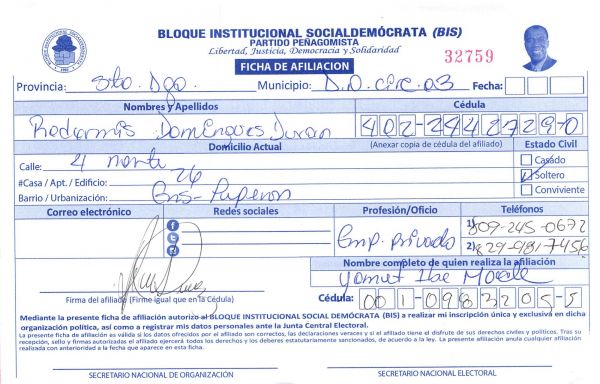 BLOQUE INSTITUCIONAL SOCIALDEMÓCRATA (BIS)
PARTIDO PEÑAGOMISTA
Libertad, Justicia, Democracia y Solidaridad
32759
FICHA DE AFILIACION
Provincia: Sto. Dgo. Municipio: D.D. circ. 03 Fecha:
Nombres y Apellidos Cédula
Domingues Duran 402-2442729-0
Domicilio Actual (Anexar copia de cédula del afiliado) Estado Civil
Calle: 4 norte Casado
#Casa / Apt. / Edificio: 26 Soltero
Barrio / Urbanización: Conviviente
Correo electrónico Redes sociales Profesión/Oficio Teléfonos
Emp. Privado 1) 809-245-0672
2) 829-981-7456
Nombre completo de quien realiza la afiliación
Firma del afiliado (Firme igual que en la Cédula) Cédula: 001-0983205-5
Mediante la presente ficha de afiliación autorizo al BLOQUE INSTITUCIONAL SOCIAL DEMÓCRATA (BIS) a realizar mi inscripción única y exclusiva en dicha
organización política, así como a registrar mis datos personales ante la Junta Central Electoral.
La presente ficha de afiliación es válida si los datos ofrecidos por el afiliado son correctos, las declaraciones veraces y si el afiliado tiene el disfrute de sus derechos civiles y políticos. Tras su
recepción, sello y firmas autorizadas el afiliado ejercerá todos los derechos y los deberes estatutariamente sancionados, de acuerdo a la ley. La presente afiliación anula cualquier afiliación
realizada con anterioridad a la fecha que aparece en esta ficha.
SECRETARIO NACIONAL DE ORGANIZACIÓN SECRETARIO NACIONAL ELECTORAL